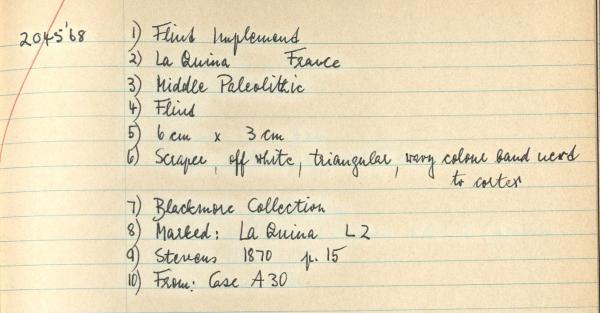 2045'68 1) Flint Implement
2) La Quina France
3) Middle Paleolithic
4) Flint
5) 6 cm x 3 cm
6) Scraper, off white, triangular, wavy colour band next
to cortex
7) Blackmore Collection
8) Marked: La Quina L 2
9) Stevens 1870 p. 15
10) From: Case A 30